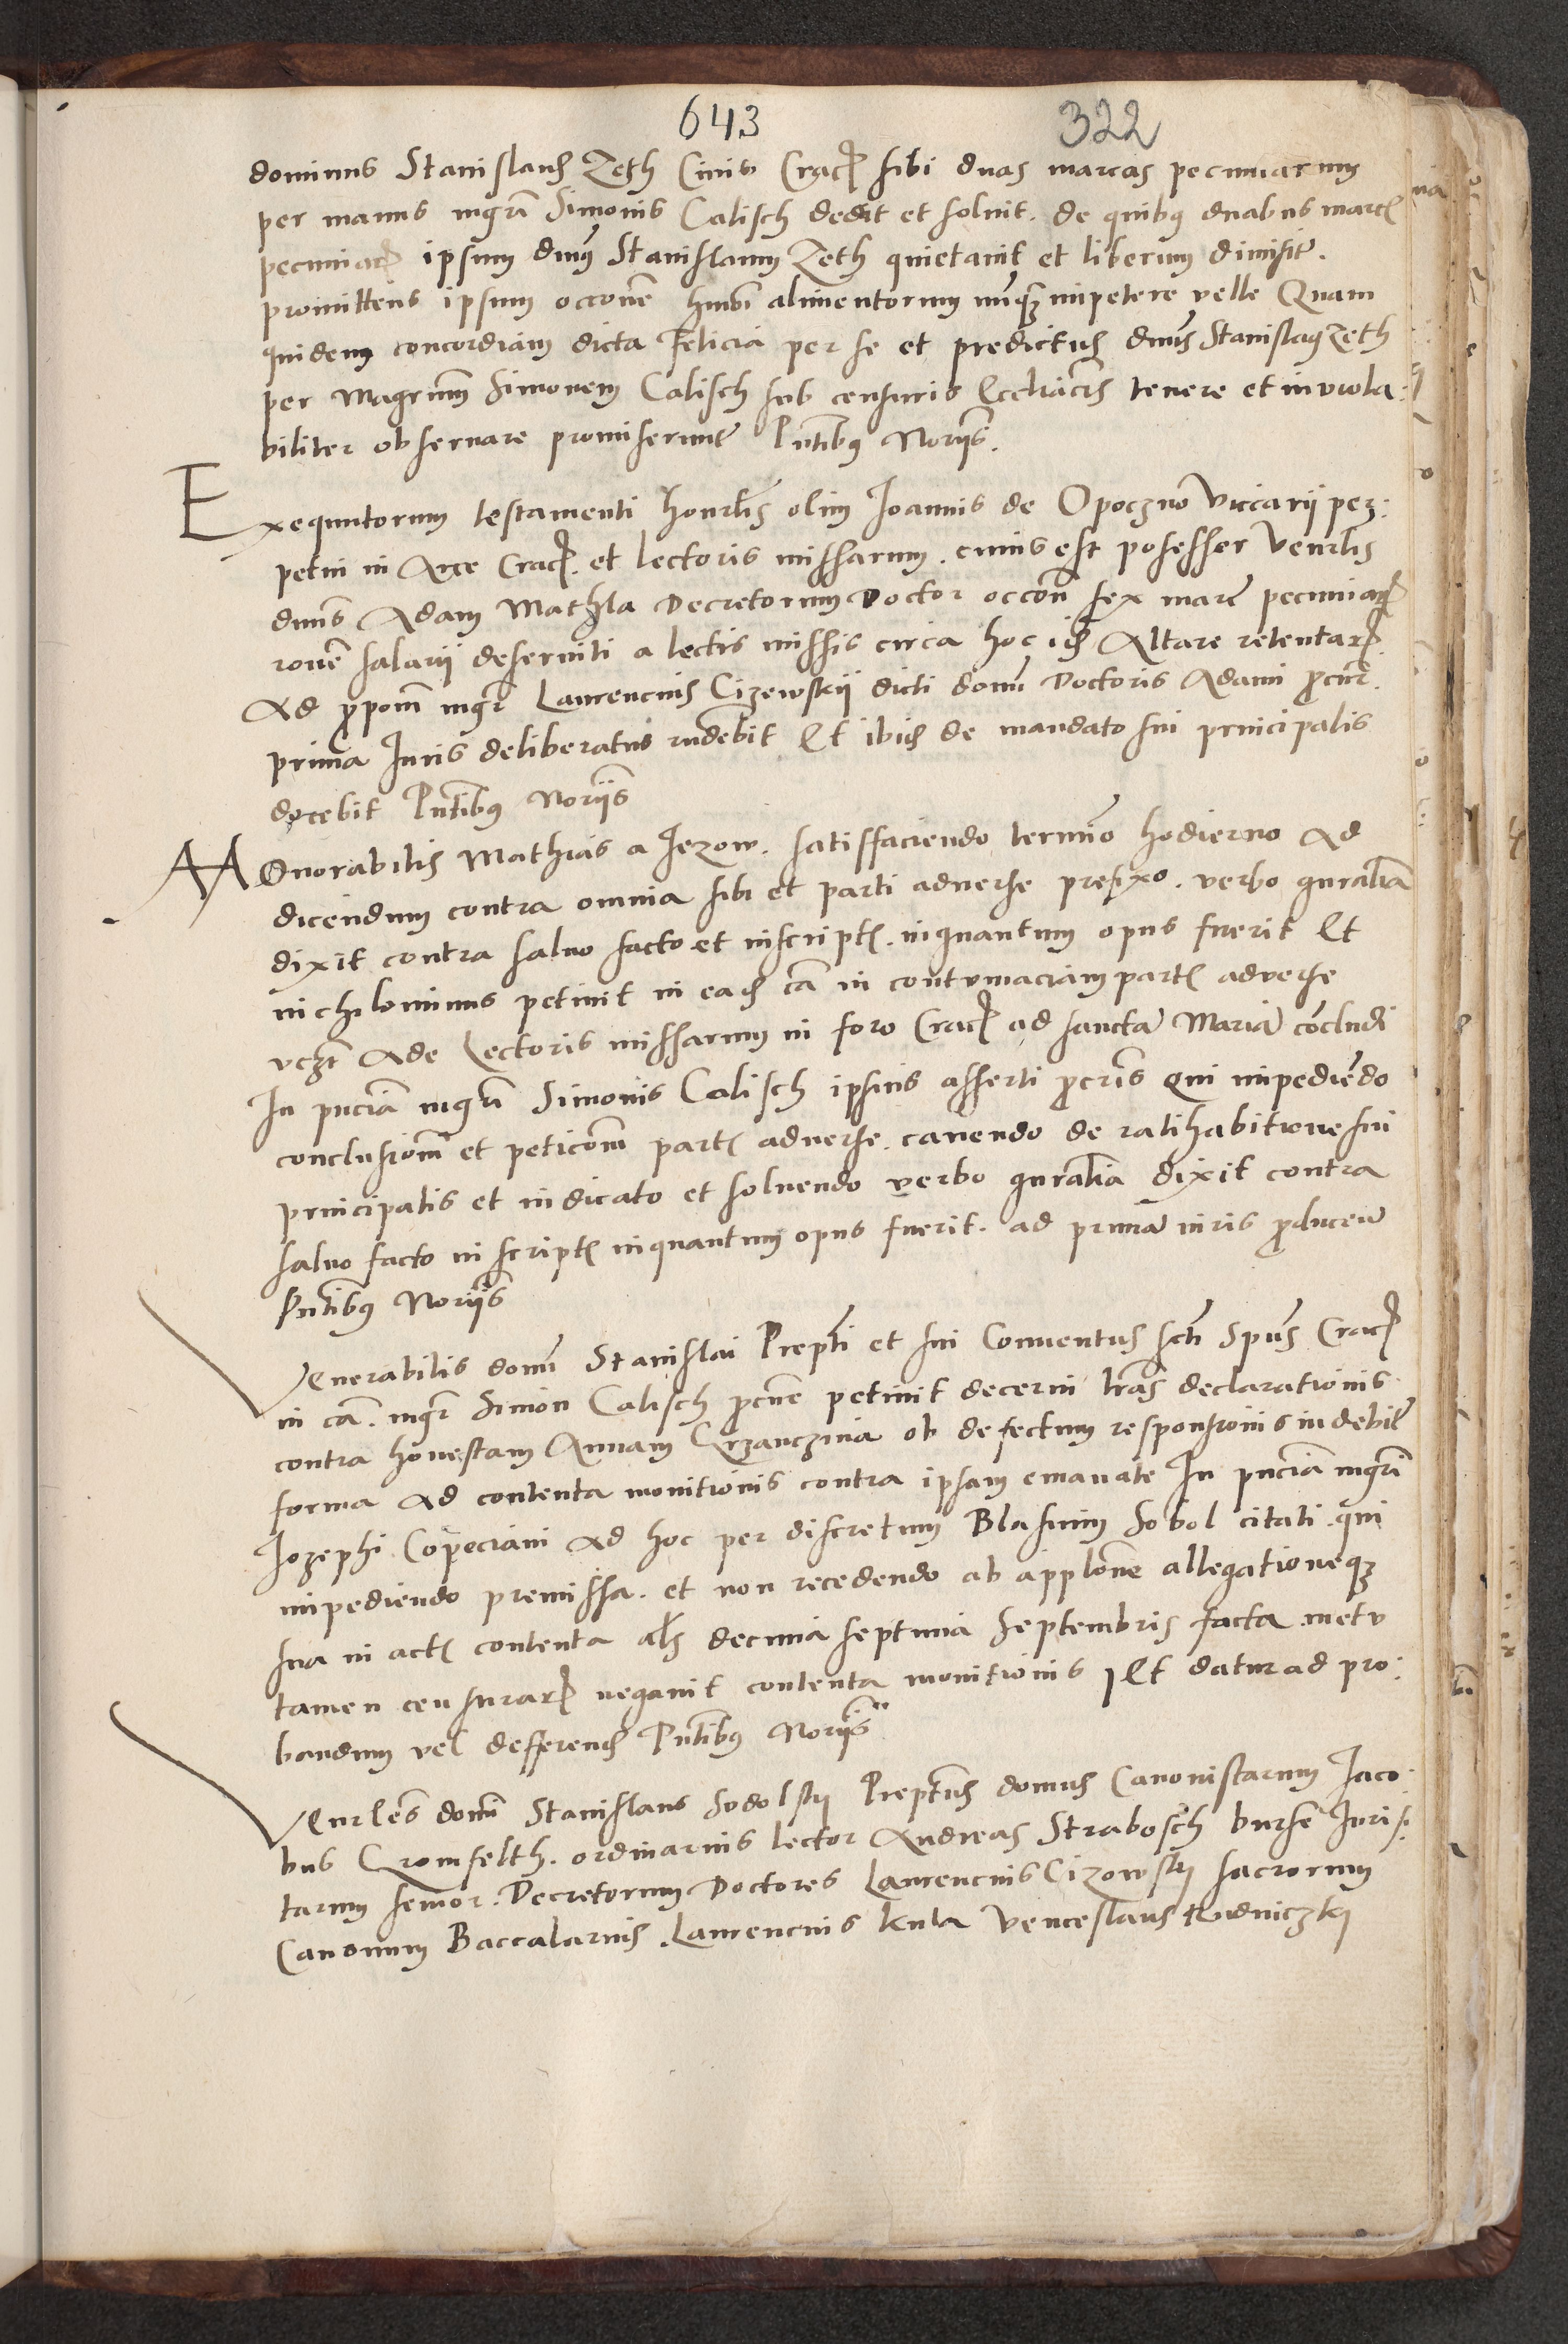 643 322
dominus Stanislaus Zeth Civis Crac sibi duas marcas pecuniarum
per manus mgri Simonis Calisch dedit et solvit. de quibus duabus marc
pecuniar ipsum dnum Stanislaum Zeth quietavit et liberum dimisit.
promittens ipsum occone hmoi alimentorum nunquam impetere velle Quam
quidem concordiam dicta Felicia per se et predictus dnus Stanislaus Zeth
per Magrum Simonem Calisch sub censuris Eccliacis tenere et inviola:
biliter observare promiserunt Pntibus Noriis.
Exequutorum testamenti honrlis olim Ioannis de Opoczno Viccarij per:
petui in Arce Crac. et lectoris missarum. cuius est posesser Venrlis
dnus Adam Mathla Decretorum Doctor occon sex marc pecuniar
rone salarij deserviti a lectis missis circa hoc id Altare retentar.
Ad propom mgr Laurencius Cizewskij dicti domi Doctoris Adami procur.
prima Iuris deliberatus rndebit Et ibid de mandato sui principalis
docebit Pntibus Noriis
Honorabilis Mathias a Iezow. satisfaciendo termino hodierno Ad
dicendum contra omnia sibi et parti adverse prefixo. verbo gnralia
dixit contra salvo facto et inscript. inquantum opus fuerit Et
nichilominus petivit in ead ca in contumaciam part adverse
vczt Ade Lectoris missarum in foro Crac ad sancta Maria concludi
In pncia mgri Simonis Calisch ipsius asserti procris Qui impediendo
conclusiom et peticom part adverse. cavendo de ratihabitione sui
principalis et iudicato et solvendo verbo gnralia dixit contra
salvo facto in script inquantum opus fuerit. ad prima iuris producen
Pntibus Noriis
Venerabilis domi Stanislai Prepti et sui Conventus scti Spus Crac
in ca. mgr Simon Calisch procne petivit decerni lras declarationis
contra honestam Annam Grzanczina ob defectum responsionis in debit
forma Ad contenta monitionis contra ipsam emanate In pncia mgri
Iozephi Copeciani Ad hoc per discretum Blasium Sobol citati. qui
impediendo premissa. et non recedendo ab applone allegationeque
sua in act contenta als decima septima Septembris facta metu
tamen censurar negavit contenta monitionis Et datur ad pro:
bandum vel defferend Pntibus Noriis
Venrles domi Stanislaus Sodolskij Preptus domus Canonistarum Iaco:
bus Gromfelth. ordinarius lector Andreas Strabosch burse Iuris:
tarum senior. Decretorum Doctores Laurencius Cizowskij sacrorum
Canonum Baccalarius. Laurencius Kula Venceslaus Rudniczki